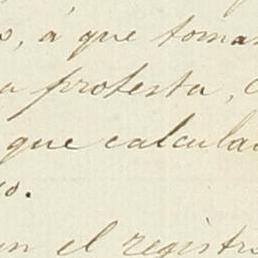 s, á que toma
a protesta,
que calcula
o.
en el registr